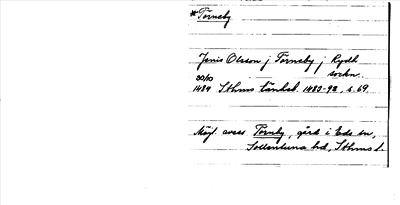 *Törneby
Jenis Olsson j Törneby j Rydh
sockn.
20/10
1489 Sthms tänkeb. 1483-92, s. 69.
Möjl. avses Törnby, gård i Eds sn,
Sollentuna hd, Sthms l.